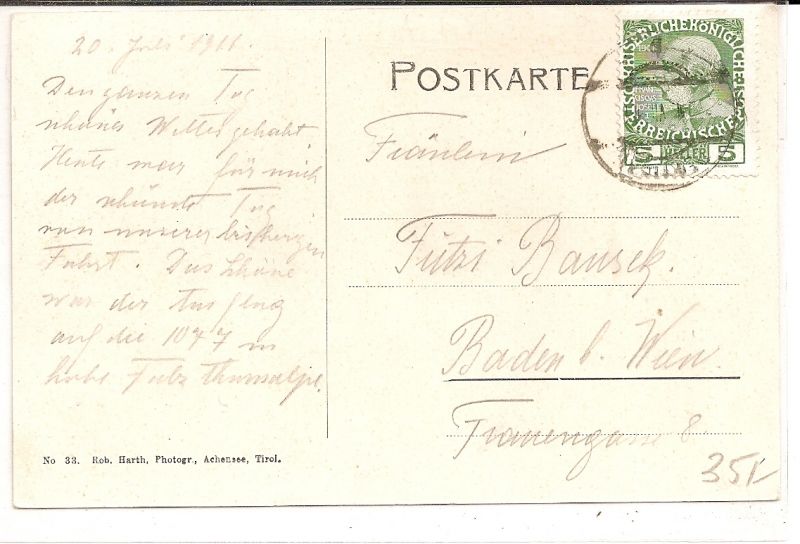 20. Juli 1911.
Den ganzen Tag
schönes Wetter gehabt.
Heute war für mich
der schönste Tag
von unserer bisherigen
Fahrt. Das Schöne
war der Ausflug
auf die 1077 m
hohe
POSTKARTE
KAISERLICHEKÖNIGLICHE
ÖSTERREICHISCHE
5 HELLER 5
Fräulein
Fritzi Bansek.
Baden b. Wien.
Frauengasse 8
No 33. Rob. Harth, Photogr., Achensee, Tirol.